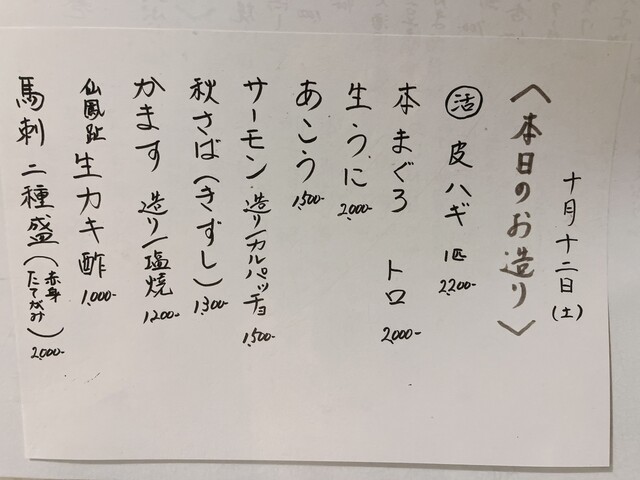 十月十二日(土)
〈本日のお造り〉
活 皮ハギ 1匹 2,200-
本まぐろ トロ 2,000-
生うに 2,000-
あこう 1,500-
サーモン 造り/カルパッチョ 1,500-
秋さば(きずし) 1,300-
かます 造り/塩焼 1,200-
仙鳳趾 生カキ酢 1,000-
馬刺 二種盛(赤身 たてがみ) 2,000-